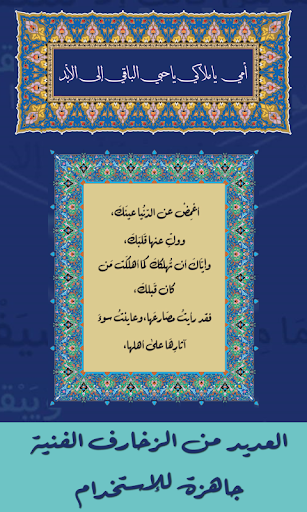 أمي ياملاكي ياحبي الباقي إلى الأبد
اغمِضْ عن الدّنْيا عينَكَ،
وولِّ عنها قَلبَكَ،
وإيّاكَ ان تُهلككَ كما اهلَكَت مَن
كان قَبلكَ،
فقد رايتُ مصَارعَها، وعاينتُ سوءَ
آثارِها علىٰ اهلها،
العديد من الزخارف الفنية
جاهزة للإستخدام